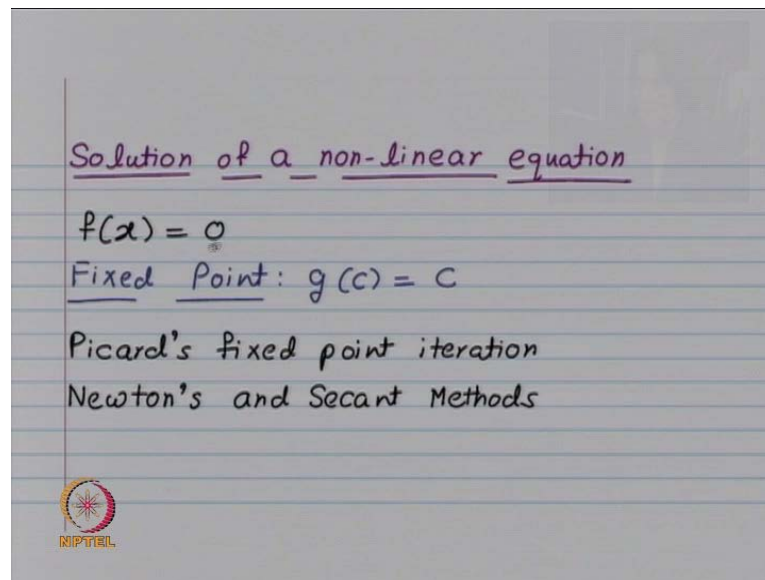 Solution of a non-linear equation
f(x) = 0
Fixed Point: g(c) = c
Picard's fixed point iteration
Newton's and Secant Methods
NPTEL